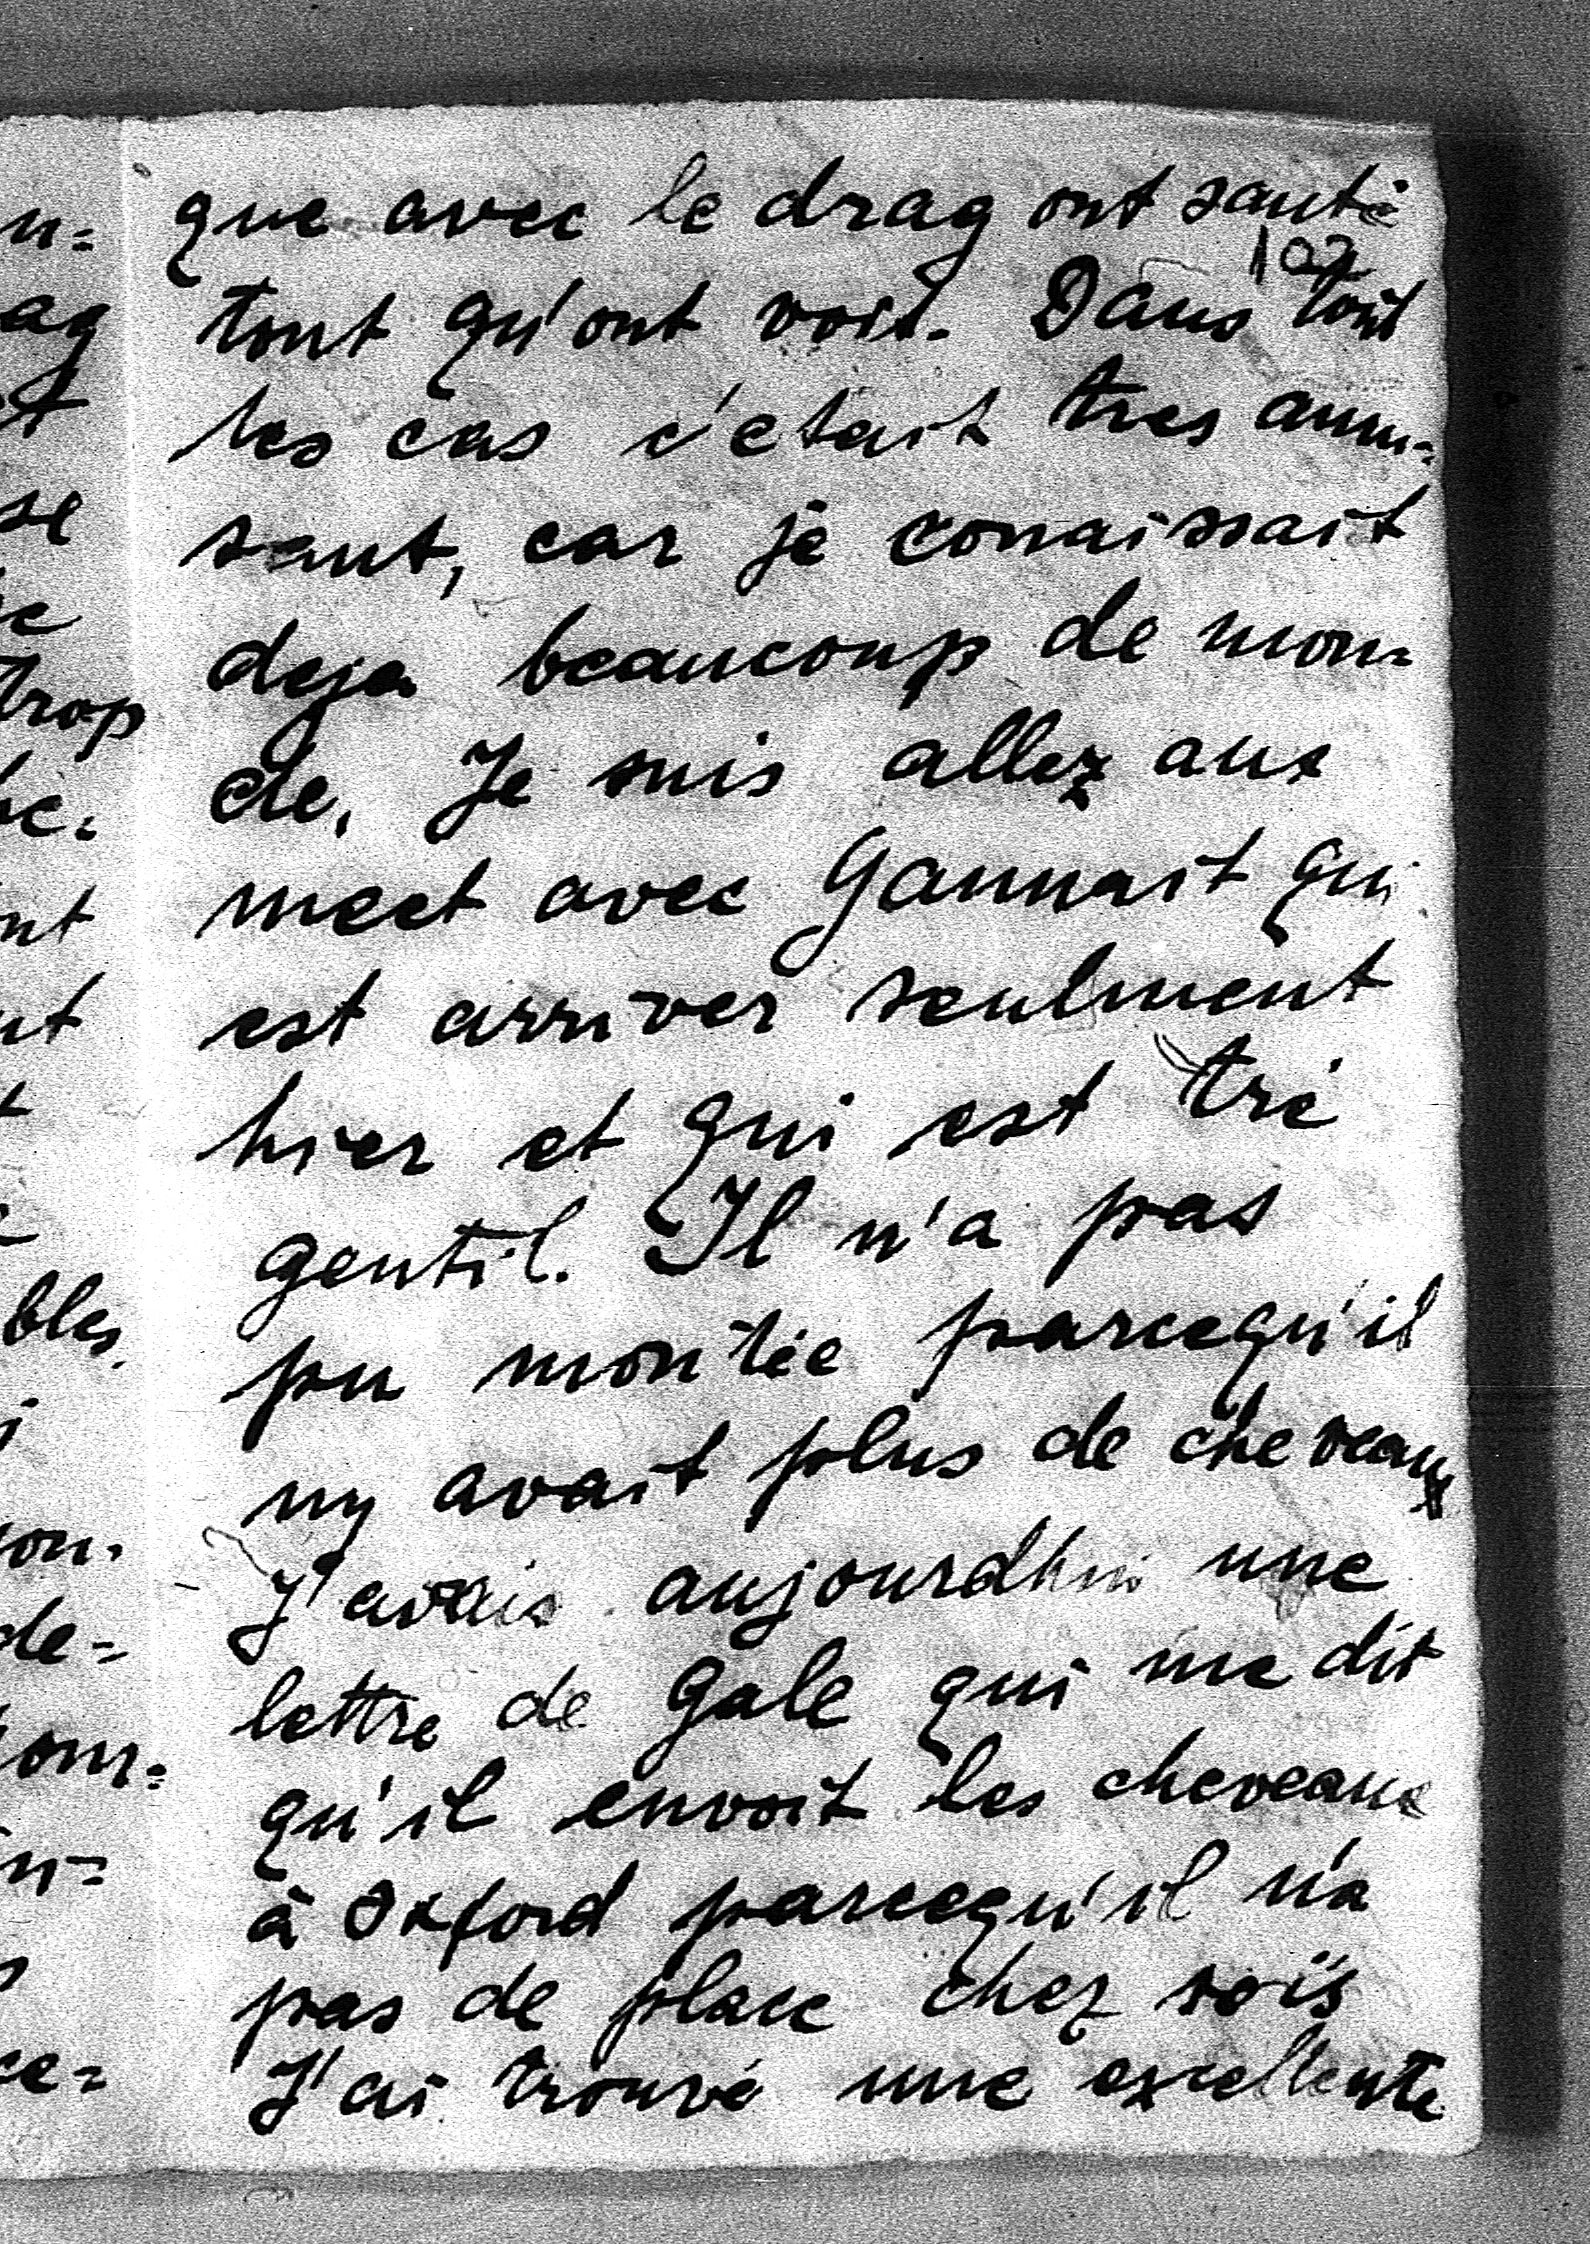 que avec le drag ont sauté
102
tout qu'ont voit. Dans tout
les cas c'etait tres amu=
sant, car je conaissait
deja beaucoup de mon=
de. Je suis allez aux
meet avec qui
est arriver seulment
hier et qui est tré
gentil. Il n'a pas
pu montée parcequ'il
ny avait plus de cheveaux
J'avais aujourdhui une
lettre de Gale qui me dit
qu'il envoit les cheveaux
à Oxford parcequ'il n'a
pas de place chez
J'ai trouvé une excellente